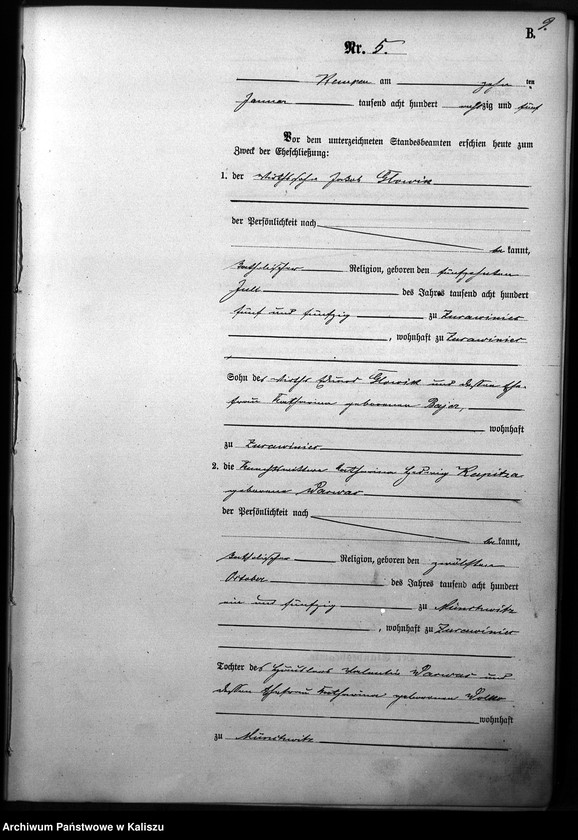 9.
B.
Nr. 5.
Kempen am zehn ten
Januar tausend acht hundert achtzig und fünf
Vor dem unterzeichneten Standesbeamten erschien heute zum
Zweck der Eheschließung:
1. der Wirthssohn Jakob Glowik
der Persönlichkeit nach
be kannt,
katholischer Religion, geboren den fünfzehnten
Juli des Jahres tausend acht hundert
fünf und fünfzig zu Zurawinier
, wohnhaft zu Zurawinier
Sohn des Wirths Glowik und dessen Ehe-
frau Katharina geborenen Bajer,
wohnhaft
zu Zurawinier
2. die Katharina Hedwig Kupitza
geborene Parwas
der Persönlichkeit nach
be kannt,
katholischer Religion, geboren den zwölften
October des Jahres tausend acht hundert
ein und fünfzig zu Münchwitz
, wohnhaft zu Zurawinier
Tochter des Häuslers Valentin Parwas und
dessen Ehefrau Katharina geborenen
wohnhaft
zu Münchwitz
Archiwum Państwowe w Kaliszu